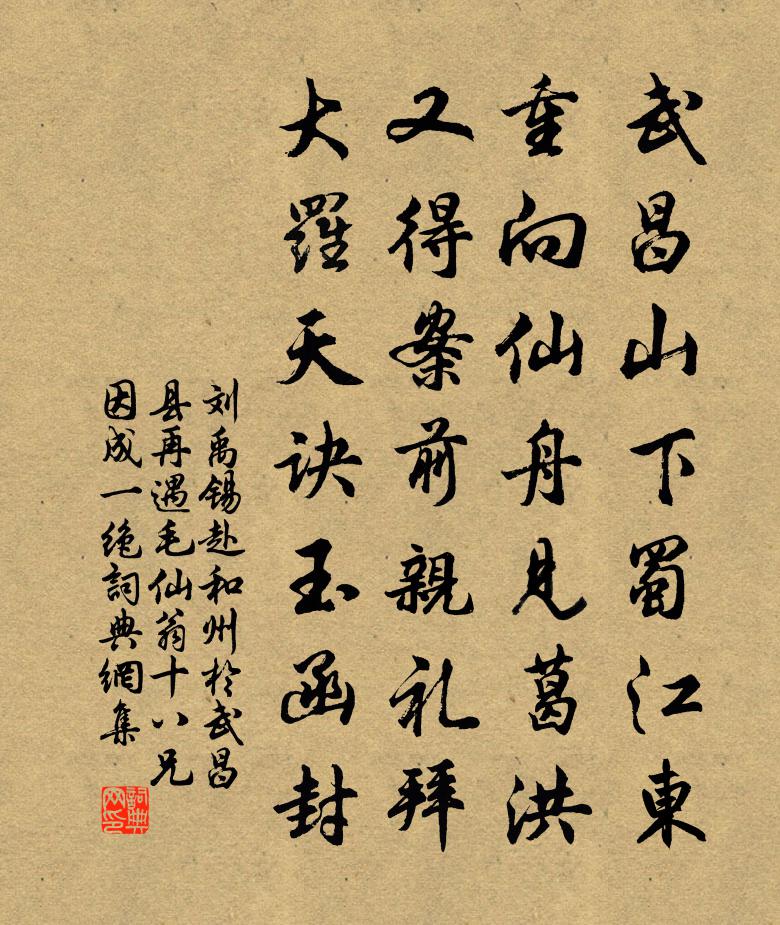 武昌山下蜀江東
重向仙舟見葛洪
又得案前親礼拜
大羅天訣玉函封
刘禹锡赴和州於武昌
县再遇毛仙翁十八兄
因成一绝詞典網集
詞典
网印